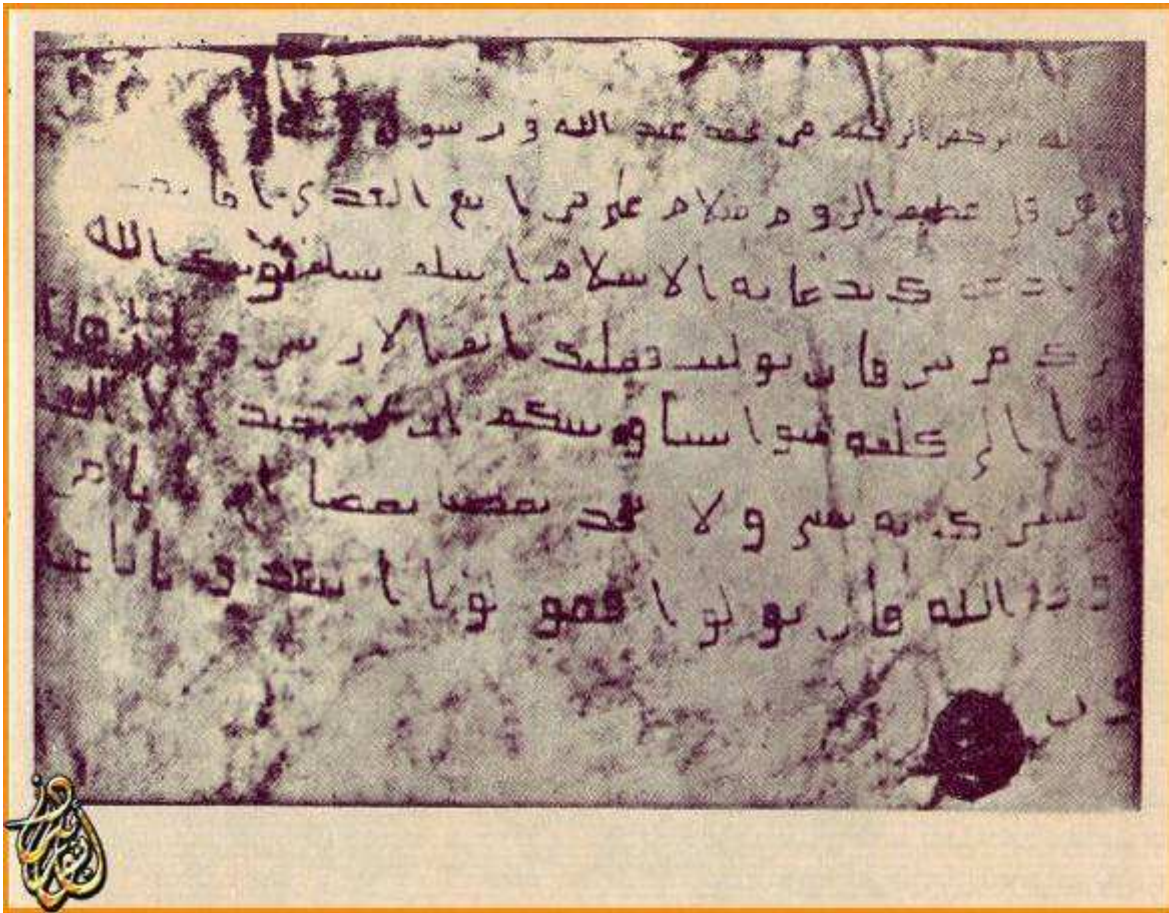 الله الرحمن الرحيم من محمد عبد الله و رسوله
هرقل عظيم الروم سلام على من اتبع الهدى اما بعد
بدعاية الاسلام اسلم تسلم يؤتك الله
مرتين فان توليت فعليك اثم الاريسيين و يا اهل
تعالوا الى كلمة سوا بيننا وبينكم ان لا نعبد الا الله
نشرك به شي و لا يتخذ بعضنا بعضا اربابا من
دون الله فان تولوا فقولوا اشهدوا بانا